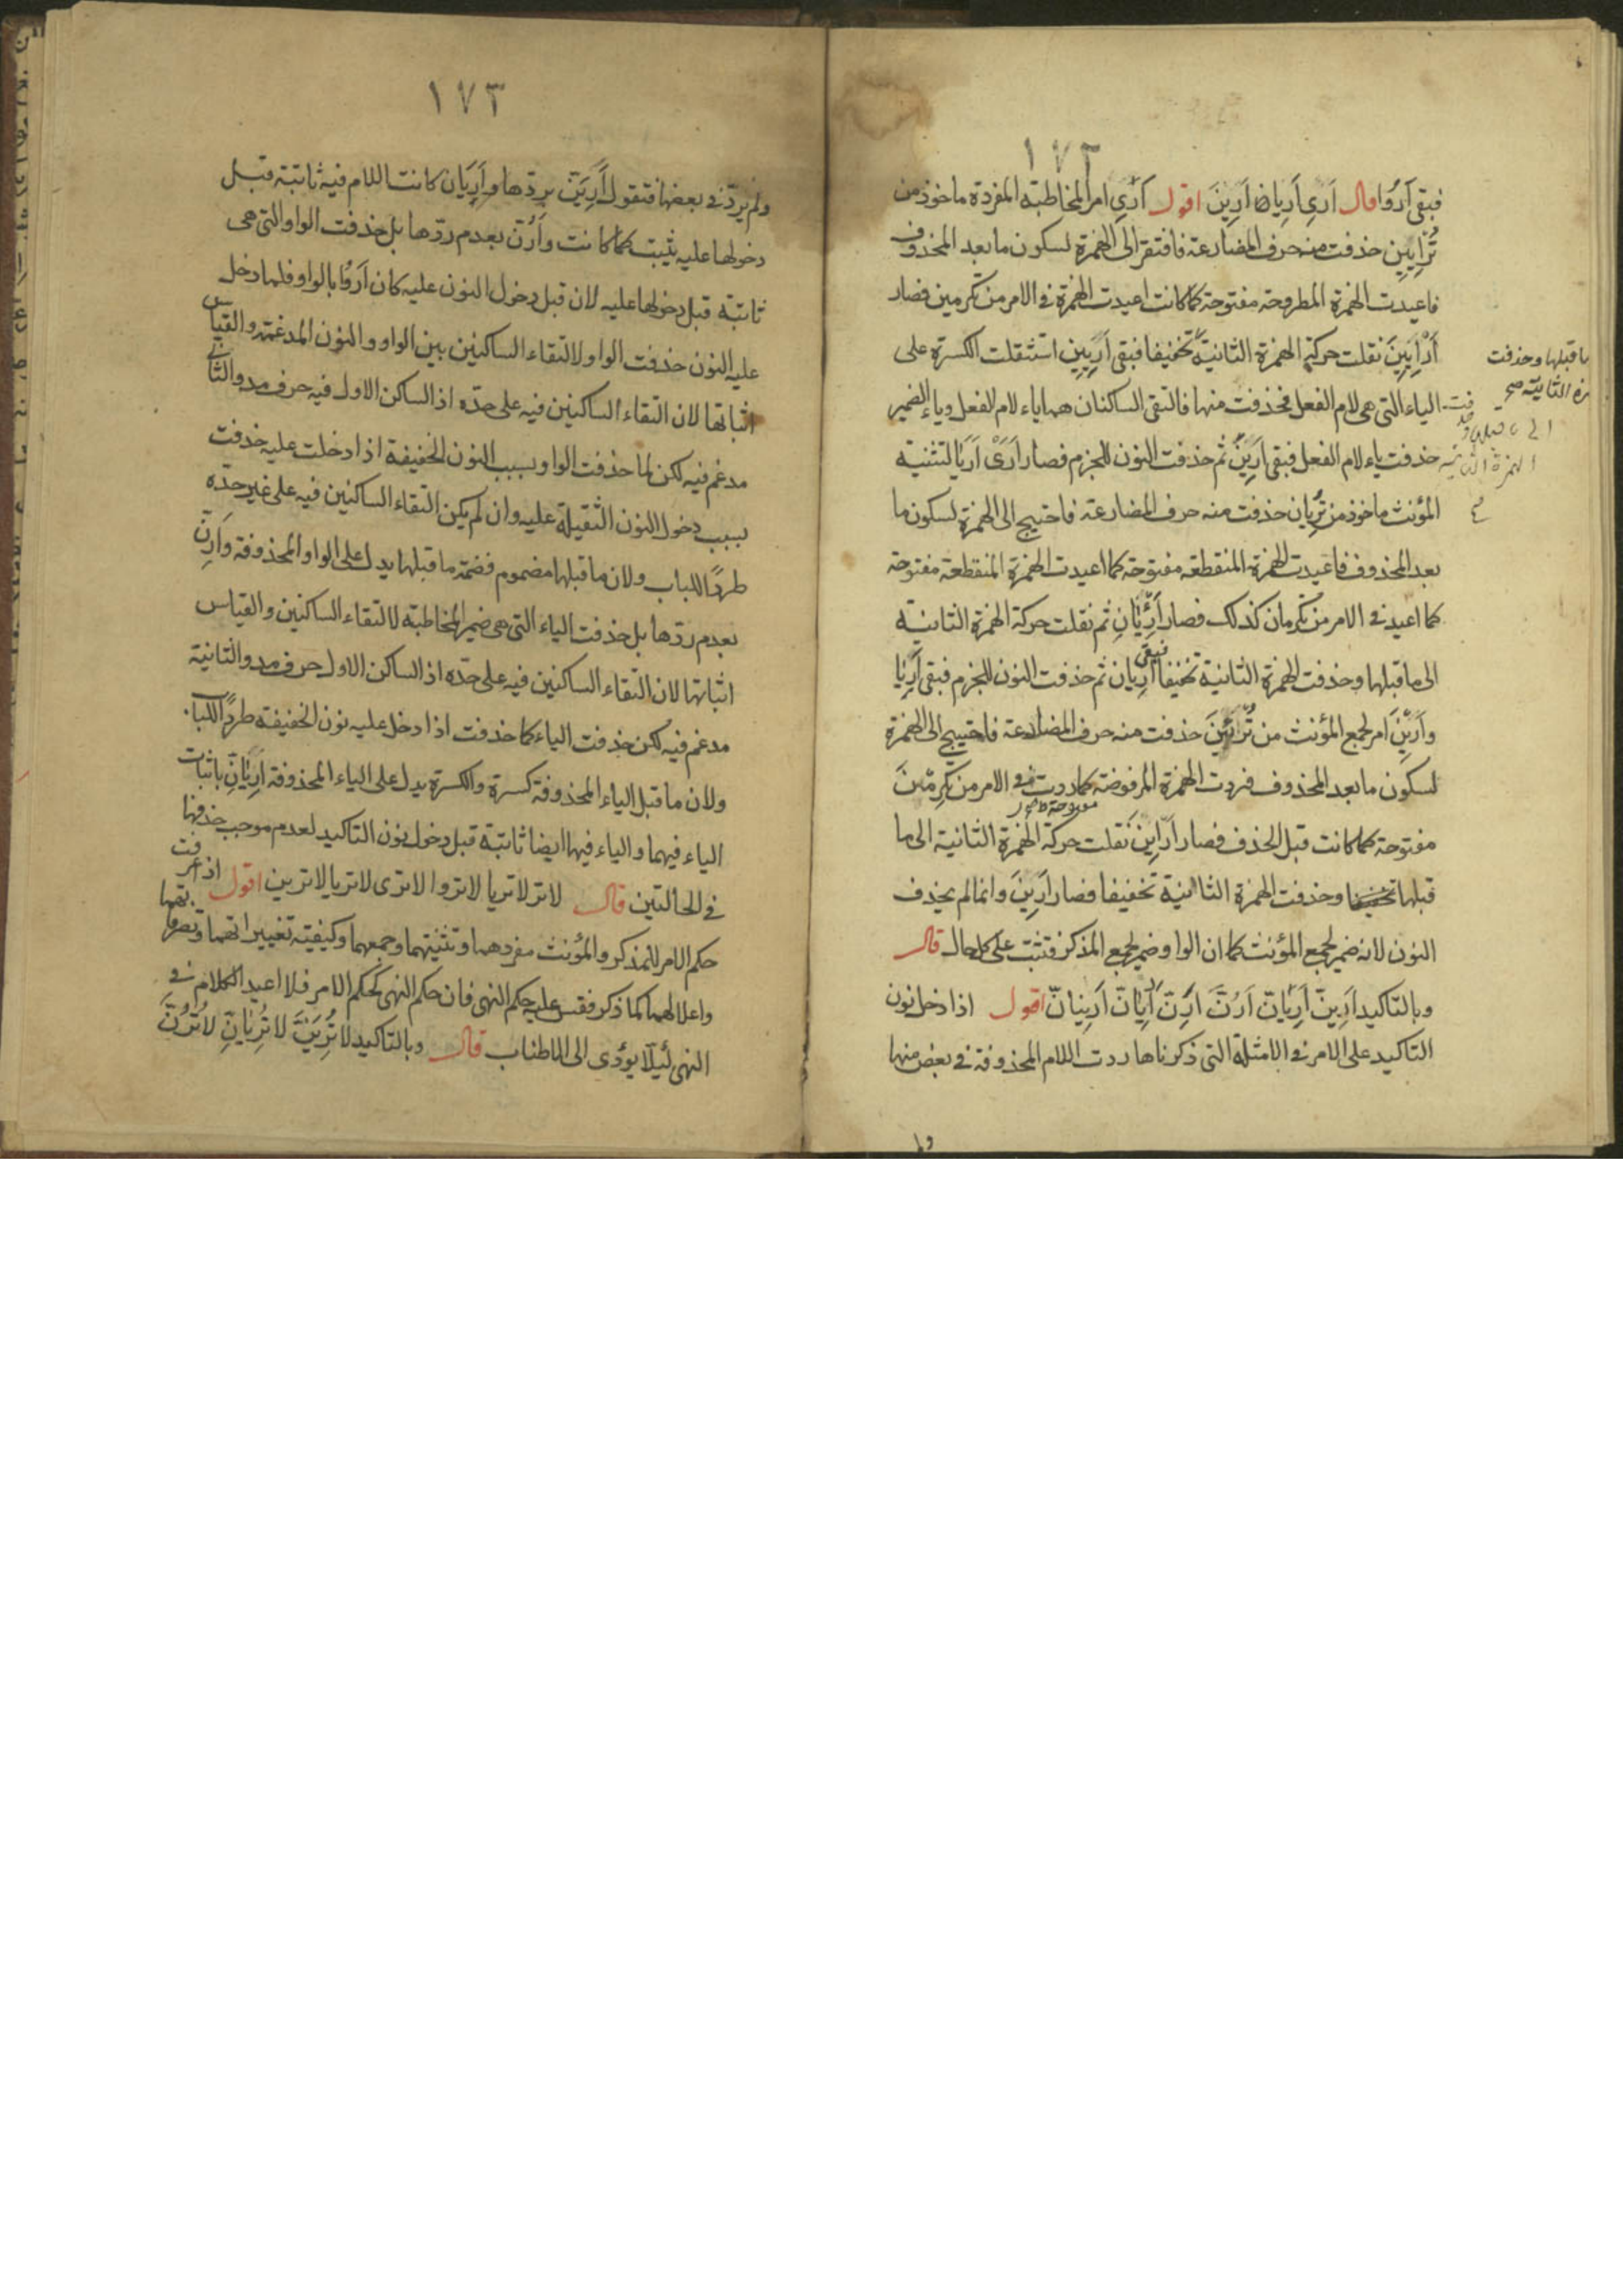 ١٧٢
فبقى اَرُوا قال اَرِى اَرِيا اَرِينَ اقول اَرِى امر المخاطبة المفردة ماخوذ من
تُرْاِيِين حذفت منه حرف المضارعة فافتقر الى الهمزة لسكون ما بعد المحذوف
فاعيدت الهمزة المطروحة مفتوحة كما كانت اعيدت الهمزة فى الامر من تكرمين فصار
اَرْاِيِينَ نقلت حركة الهمزة الثانية تخفيفا فبقى اَرِيِين استثقلت الكسرة على
ما قبلها وحذفت
زة الثانية صح
الياء التى هى لام الفعل فحذفت منها فالتقى الساكنان هما ياء لام الفعل وياء الضمير
حذفت ياء لام الفعل فبقى اَرِينَ ثم حذفت النون للجزم فصار اَرِى اَرِيا لتثنية
المؤنث ماخوذ من تُرِيان حذفت منه حرف المضارعة فاحتيج الى الهمزة لسكون ما
بعد المحذوف فاعيدت الهمزة المنقطعة مفتوحة كما اعيدت الهمزة المنقطعة مفتوحة
كما اعيد فى الامر من تكرمان كذلك فصار اَرْئِيَانِ ثم نقلت حركة الهمزة الثانية
الى ما قبلها وحذفت الهمزة الثانية تخفيفا فبقى اَرِيان ثم حذفت النون للجزم فبقى اَرِيا
واَرِينَ امر لجمع المؤنث من تُرْئِينَ حذفت منه حرف المضارعة فاحتيج الى الهمزة
لسكون ما بعد المحذوف فردت الهمزة المرفوضة كما ردت فى الامر من تكرمْنَ
مفتوحة كما كانت قبل الحذف فصار اَرْاِينَ نقلت حركة الهمزة الثانية الى ما
قبلها وحذفت الهمزة الثانية تخفيفا فصار اَرِينَ وانما لم يحذف
النون لانه ضمير لجمع المؤنث كما ان الواو ضمير لجمع المذكر فتثبت على كل حال قال
وبالتاكيد اَرِيَنّ اَرِيَانّ اَرُنَّ اَرِنّ اَرِيَانّ اَرِينانّ اقول اذا دخل نون
التاكيد على الامر فى الامثلة التى ذكرناها ردت اللام المحذوفة فى بعض منها
١٧٣
ولم يردّ فى بعضها فتقول اَرِيَنّ بردّها واَرِيَان كانت اللام فيه ثابتة قبل
دخولها عليه يثبت كما كانت واَرُنّ بعدم ردّها بل حذفت الواو التى هى
ثابتة قبل دخولها عليه لان قبل دخول النون عليه كان اَرُوا بالواو فلما دخل
عليه النون حذفت الواو لالتقاء الساكنين بين الواو والنون المدغمة والقياس
اثباتها لان التقاء الساكنين فيه على حدّه اذ الساكن الاول فيه حرف مد والثانى
مدغم فيه لكن لما حذفت الواو بسبب النون الخفيفة اذا دخلت عليه حذفت
بسبب دخول النون الثقيلة عليه وان لم يكن التقاء الساكنين فيه على غير حدّه
طردًا للباب ولان ما قبلها مضموم فضمة ما قبلها يدل على الواو المحذوفة واَرِنّ
بعدم ردّها بل حذفت الياء التى هى ضمير المخاطبة لالتقاء الساكنين والقياس
اثباتها لان التقاء الساكنين فيه على حدّه اذ الساكن الاول حرف مد والثانية
مدغم فيه لكن حذفت الياء كما حذفت اذا دخل عليه نون الخفيفة طردًا للباب
ولان ما قبل الياء المحذوفة كسرة والكسرة يدل على الياء المحذوفة اَرِيَانّ باثبات
الياء فيهما والياء فيها ايضا ثابتة قبل دخول نون التاكيد لعدم موجب حذفها
فى الحالتين قال لاتر لاتريا لاتروا لاترى لاتريا لاترين اقول اذ عرفت
حكم الامر للمذكر والمؤنث مفردهما وتثنيتهما وجمعهما وكيفية تغييراتهما وتصرفاتهما
واعلالهما كما ذكر فقس عليه حكم النهى فان حكم النهى كحكم الامر فلا اعيد الكلام فى
النهى لئيلّا يؤدى الى الاطناب قال وبالتاكيد لاتُرِيَنَّ لاتُرِيَانِّ لاتُرُنَّ